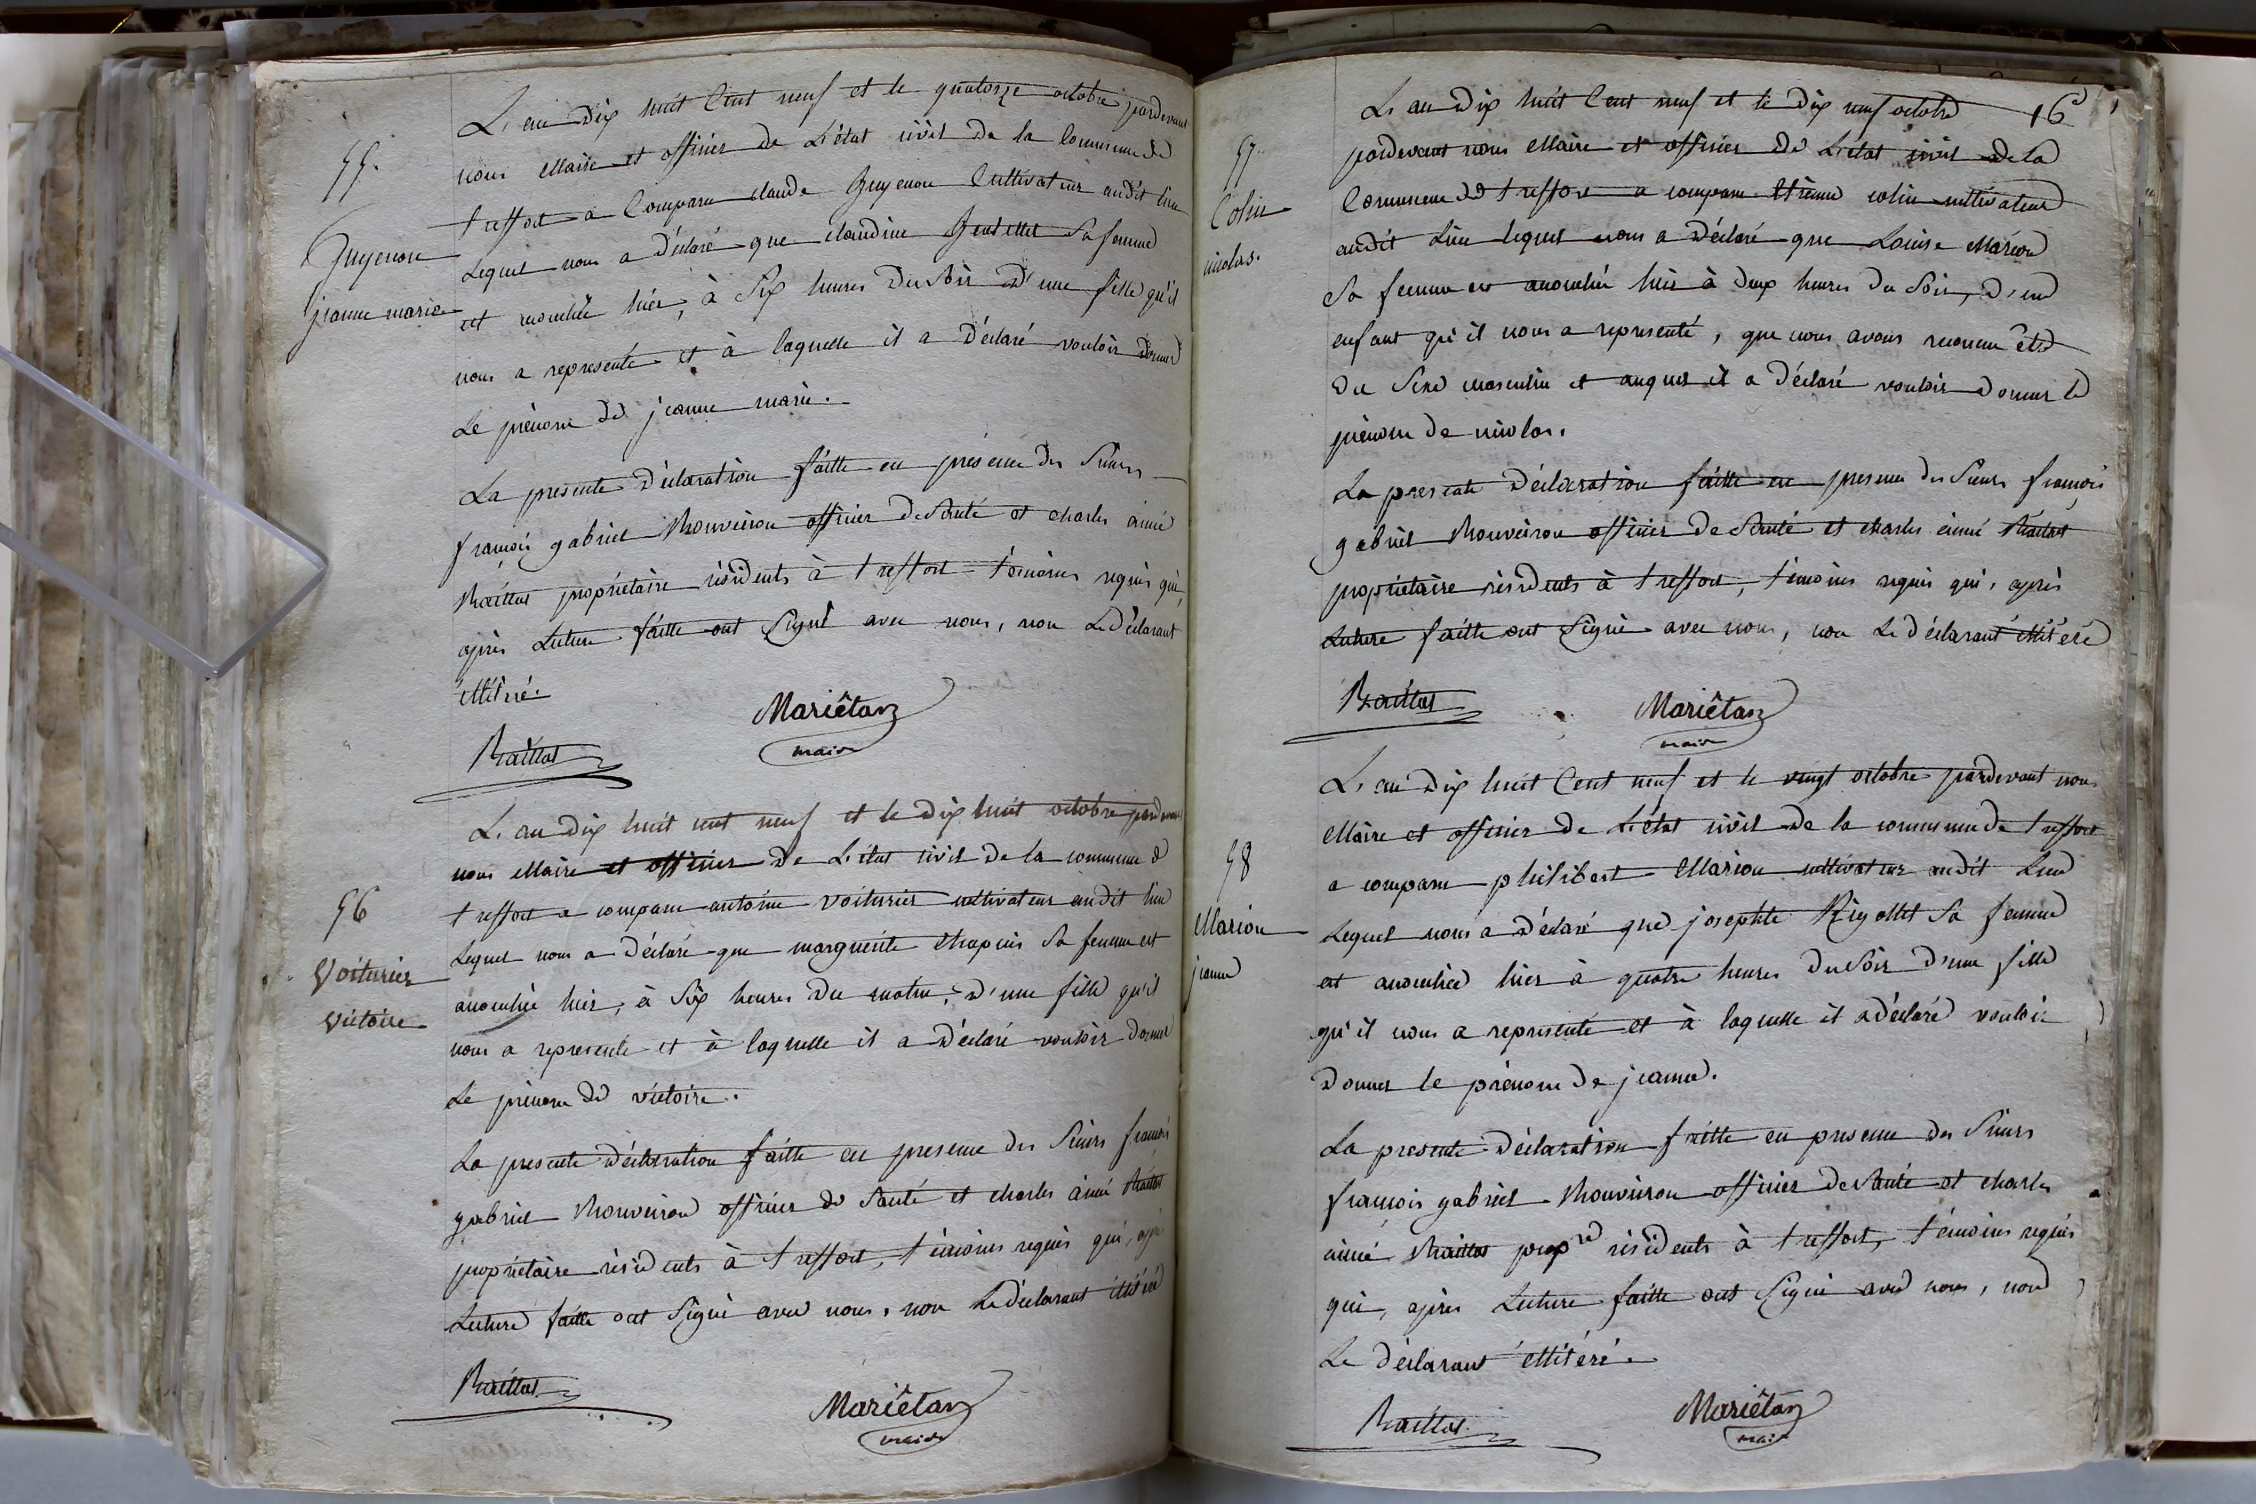 55.
Guyenon
jeanne marie
L'an Dix huit Cent neuf et le quatorze octobre pardevant
nous Maire et officier de L'état civil de la Commune de
treffort a Comparu claude Guyenon Cultivateur audit lieu
Lequel nous a Déclaré que claudine sa femme
est accouchée hier, à Six heures Du Soir D'une fille qu'il
nous a représenté et à laquelle il a Déclaré vouloir Donner
Le prénom de jeanne marie.
La présente Déclaration faitte en présence des Sieurs
françois gabriel Mouveiron officier De Santé et charles aimé
Raillat propriétaire résidents à treffort témoins requis qui,
après Lecture faitte ont Signé avec nous, non Le Déclarant
illitéré.
Mariétan
maire
Raillat
56
Voiturier
Victoire
L'an Dix huit cent neuf et le Dix huit octobre pardevant
nous Maire et officier De L'état civil De la commune de
treffort a comparu antoine voiturier cultivateur audit lieu
Lequel nous a Déclaré que marguerite chapuis Sa femme est
accouchée hier, à Six heures Du matin, D'une fille qu'il
nous a représenté et à laquelle il a Déclaré vouloir Donner
Le prénom de victoire.
La présente Déclaration faitte en présence des Sieurs françois
gabriel Mouveiron officier de Santé et charles aimé Raillat
propriétaire résidents à treffort, témoins requis qui, après
Lecture faitte ont Signé avec nous, non Le déclarant illitéré
Raillat
Mariétan
maire
16
57
Colin
nicolas.
L'an Dix huit Cent neuf et le Dix neuf octobre
pardevant nous Maire et officier de L'état civil de la
Commune de treffort a comparu Etienne colin cultivateur
audit Lieu lequel nous a Déclaré que Louise Marion
Sa femme est accouchée hier à deux heures Du Soir, D'un
enfant qu'il nous a représenté, que nous avons reconnu être
Du Sexe masculin et auquel il a Déclaré vouloir Donner le
prénom De nicolas.
La présente Déclaration faitte en présence des Sieurs françois
gabriel Mouveiron officier De Santé et charles aimé Raillat
propriétaire résidents à treffort, témoins requis qui, après
Lecture faitte ont Signé avec nous, non Le déclarant illitéré
Raillat
Mariétan
maire
58
Marion
jeanne
L'an Dix huit Cent neuf et le vingt octobre pardevant nous
Maire et officier De L'état civil De la commune de treffort
a comparu philibert Marion cultivateur audit Lieu
Lequel nous a Déclaré que josephte Rigollet Sa femme
est accouchée hier à quatre heures Du Soir D'une fille
qu'il nous a représenté et à laquelle il a déclaré vouloir
Donner le prénom De jeanne.
La présente Déclaration faitte en présence des Sieurs
françois gabriel Mouveiron officier De Santé et charles
aimé Raillat prop.re résidents à treffort, témoins requis
qui, après Lecture faitte ont Signé avec nous, non
Le déclarant illitéré.
Raillat
Mariétan
maire